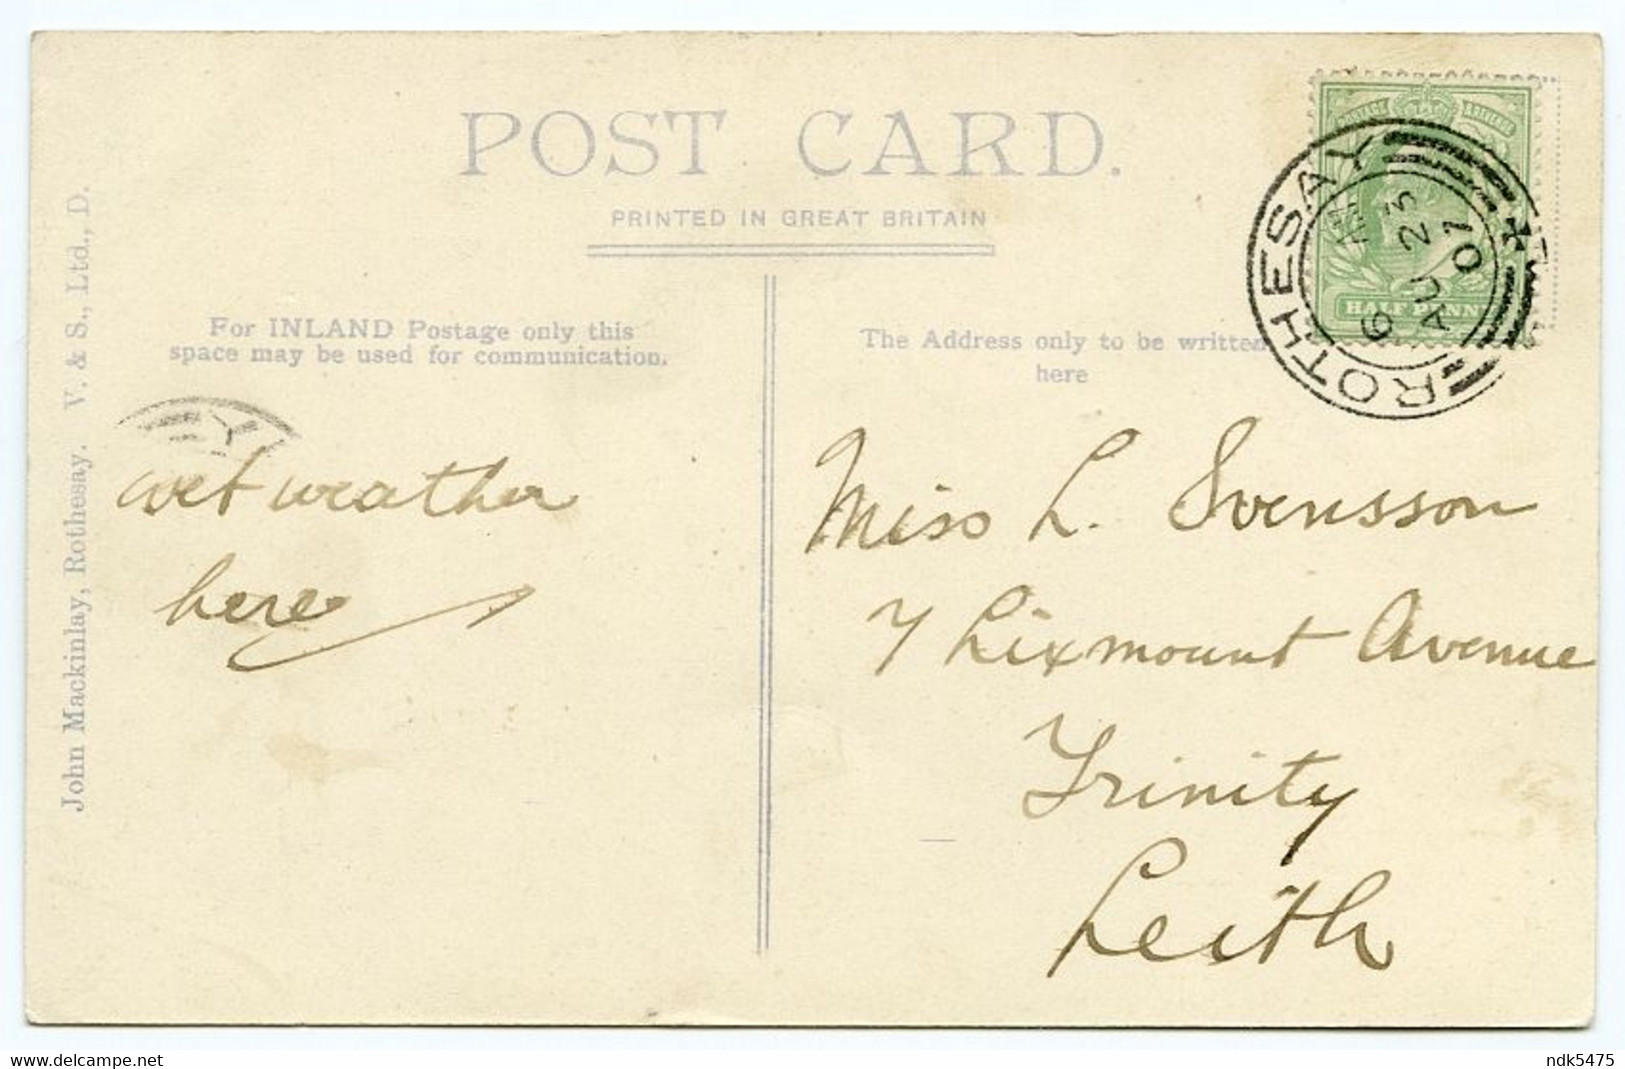 POST CARD.
PRINTED IN GREAT BRITAIN
For INLAND Postage only this
space may be used for communication.
The Address only to be written
here
John Mackinlay, Rothesay. V. & S., Ltd., D.
POSTAGE REVENUE
HALF PENN
ROTHESAY
6 AM
AU 23
07
wet weather
here
Miss L. Svensson
7 Lixmount Avenue
Trinity
Leith
www.delcampe.net
ndk5475